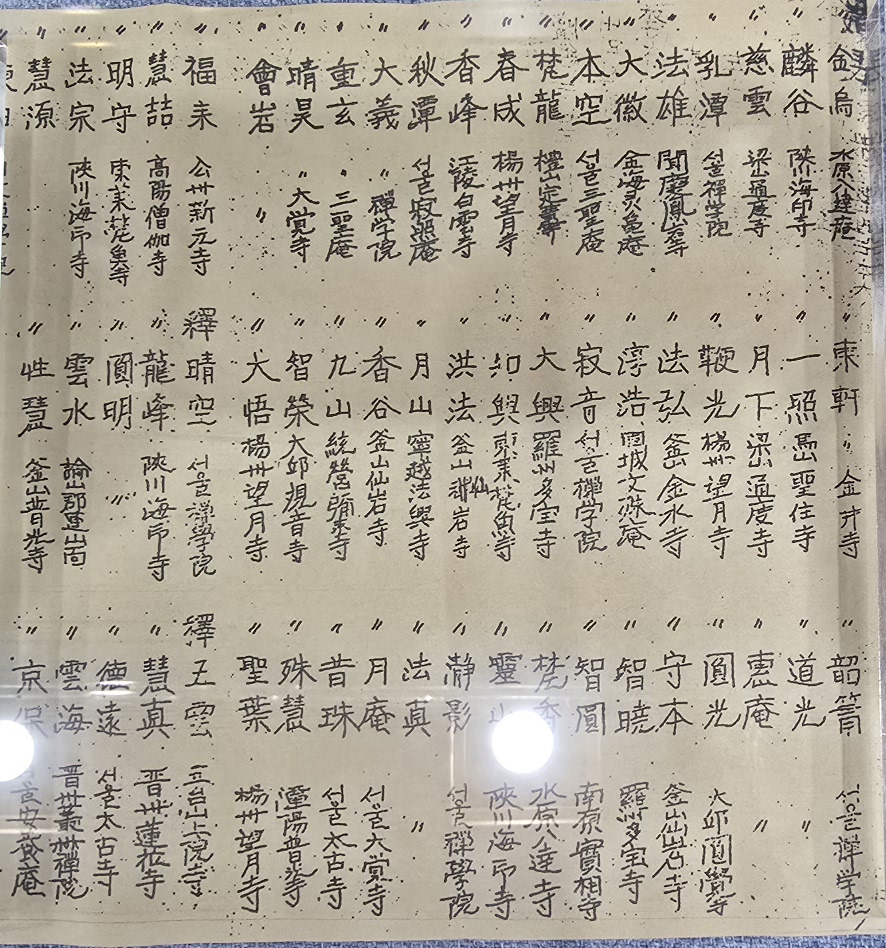 〃 金烏 水原八達庵 〃 東軒 〃 金井寺 〃 韶箐 서울禪学院
〃 麟谷 陜川海印寺 〃 一照 聖住寺 〃 道光 〃
〃 慈雲 梁山通度寺 〃 月下 梁山通度寺 〃 恵庵 〃
〃 乳潭 서울禪学院 〃 鞭光 楊州望月寺 〃 圓光 大邱圓覺寺
〃 法雄 聞慶鳳岩寺 〃 法弘 釜山金水寺 〃 守本 釜山仙岩寺
〃 大徽 金海灵龜庵 〃 淳浩 固城文殊庵 〃 智曉 羅州多宝寺
〃 本空 서울三聖庵 〃 寂音 서울禪学院 〃 智圓 南原實相寺
〃 梵龍 〃 大興 羅州多宝寺 〃 梵香 水原八達寺
〃 春成 楊州望月寺 〃 知興 東萊梵魚寺 〃 陜川海印寺
〃 香峰 江陵白雲寺 〃 洪法 釜山仙岩寺 〃 瀞影 서울禪學院
〃 秋潭 서울寂照庵 〃 月山 寧越法興寺 〃 法真 〃
〃 大義 〃 禪学院 〃 香谷 釜山仙岩寺 〃 月庵 서울大覚寺
〃 重玄 〃 三聖庵 〃 九山 〃 昔珠 서울太古寺
〃 晴昊 〃 大覚寺 〃 智榮 大邱観音寺 〃 殊慧 潭陽普光寺
〃 會岩 〃 〃 大悟 楊州望月寺 〃 聖葉 楊州望月寺
〃 福未 公州新元寺 釋 晴空 서울禪學院 釋 玉雲 五台山上院寺
〃 慧喆 高陽僧伽寺 〃 龍峰 陜川海印寺 〃 慧真 晋州蓮花寺
〃 明守 東萊梵魚寺 〃 圓明 〃 〃 德遠 서울太古寺
〃 法宗 陜川海印寺 〃 雲水 論山郡連山面 〃 雲海 晋州叢州禪院
〃 慧源 〃 性慧 釜山普光寺 〃 京保